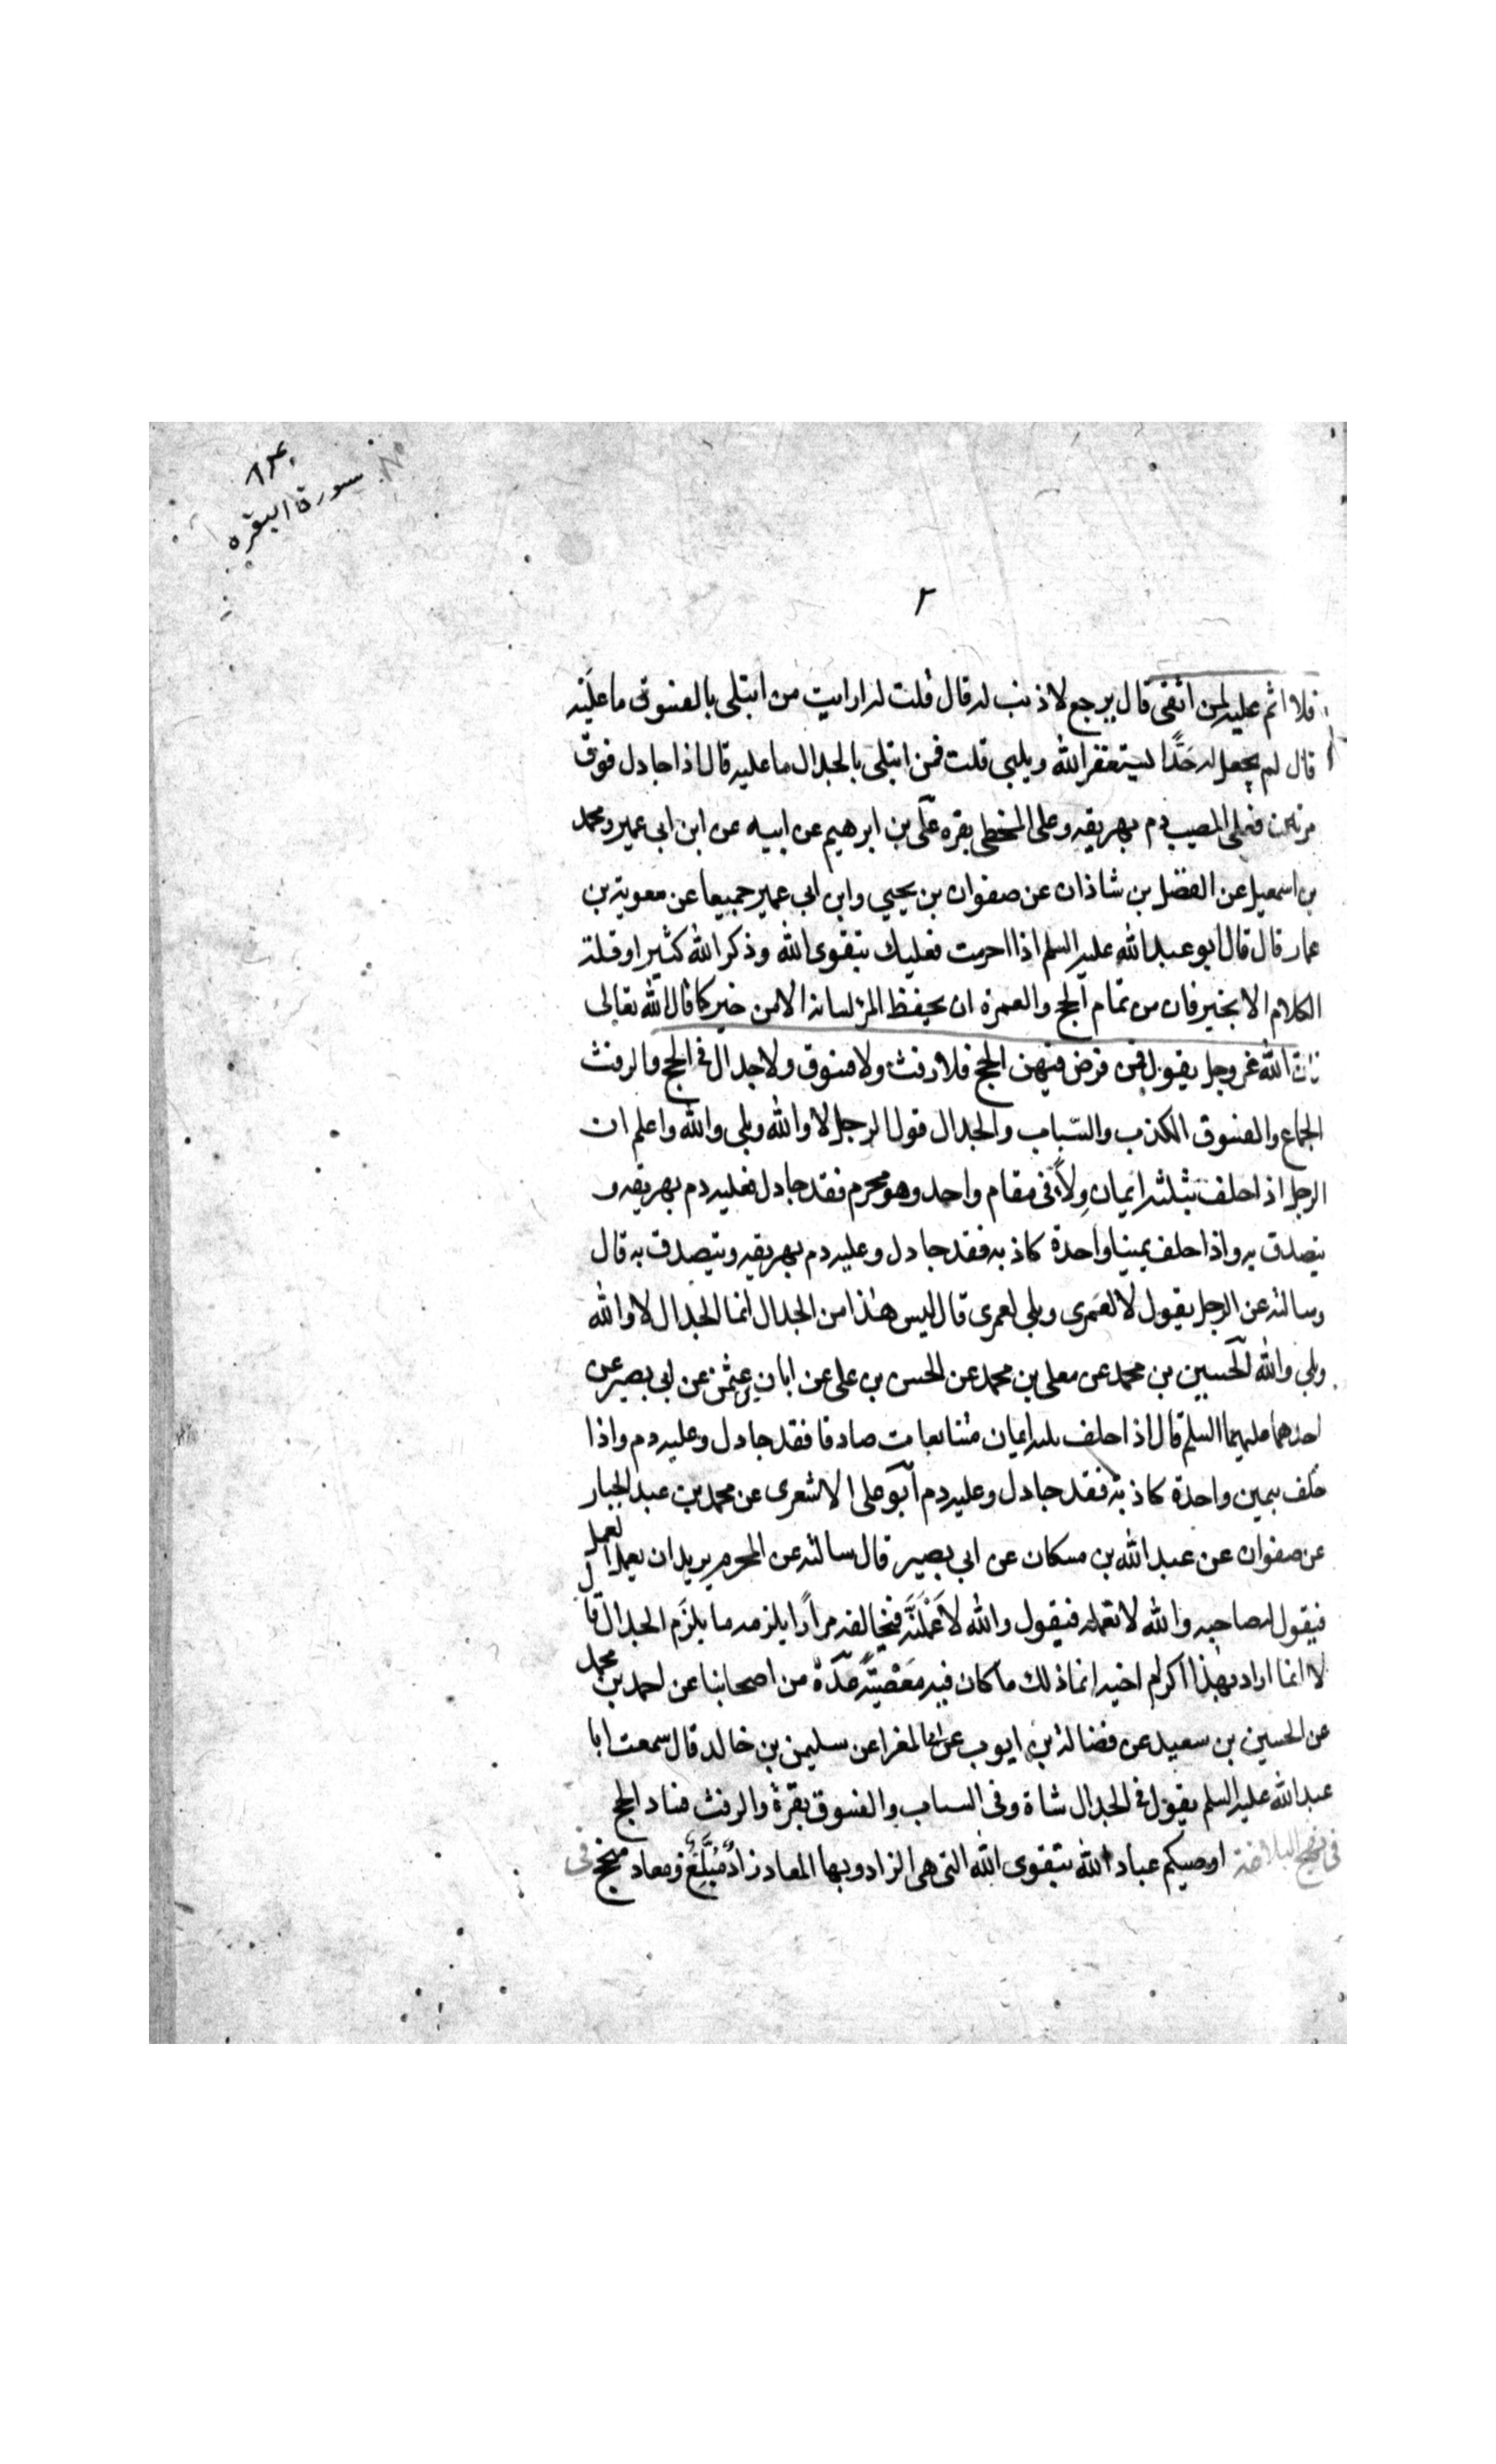 سورة البقره
٢
فلا اثم عليه لمن اتقى قال يرجع لا ذنب له قال قلت له ارايت من ابتلى بالفسوق ما عليه
قال لم يجعل له حدّا يستغفر الله ويلبى قلت فمن ابتلى بالجدال ما عليه قال اذا جادل فوق
مرتين فعلى المصيب دم يهريقه وعلى المخطى بقره على بن ابرهيم عن ابيه عن ابن ابى عمير ومحمد
بن اسمعيل عن الفضل بن شاذان عن صفوان بن يحيي وابن ابى عمير جميعا عن معوية بن
عمار قال قال ابو عبد الله عليه السلم اذا احرمت فعليك بتقوى الله وذكر الله كثيرا وقلة
الكلام الا بخير فان من تمام الحج والعمرة ان يحفظ المرء لسانه الا من خير كما قال الله تعالى
فان الله عز وجل يقول فمن فرض فيهن الحج فلا رفث ولا فسوق ولا جدال فى الحج والرفث
الجماع والفسوق الكذب والسّباب والجدال قول الرجل لا والله وبلى والله واعلم ان
الرجل اذا حلف بثلثة ايمان وِلاءً فى مقام واحد وهو محرم فقد جادل فعليه دم يهريقه و
يتصدق به واذا حلف يمينا واحدة كاذبه فقد جادل وعليه دم يهريقه ويتصدق به قال
وسالته عن الرجل يقول لا لعَمرى وبلى لعمرى قال ليس هذا من الجدال انما الجدال لا والله
وبلى والله الحسين بن محمد عن معلى بن محمد عن الحسن بن على عن ابان بن عثمن عن ابى بصير عن
احدهما عليهما السلم قال اذا حلف ثلثه ايمان متتابعات صادقا فقد جادل وعليه دم واذا
حلف بيمين واحدة كاذبة فقد جادل وعليه دم ابو على الاشعرى عن محمد بن عبد الجبار
عن صفوان عن عبد الله بن مسكان عن ابى بصير قال سالته عن المحرم يريد ان يعمل العمل
فيقول له صاحبه والله لا تعمله فيقول والله لاَعْمَلَنَّه فيخالفه مرارًا يلزمه ما يلزَم الجدال قال
لا انما اراد بهذا اكرام اخيه انما ذلك ما كان فيه مَعْصيَّةٌ عدّة من اصحابنا عن احمد بن محمد
عن الحسين بن سعيد عن فضالة بن ايوب عن ابى المغرا عن سليمن بن خالد قال سمعت ابا
عبد الله عليه السلم يقول فى الجدال شاة وفى السباب والفسوق بقرة والرفث فساد الحج
فى نهج البلاغة اوصيكم عباد الله بتقوى الله التى هى الزاد وبها المعاد زادٌ مُبَلِّغٌ ومعاد منجح فى